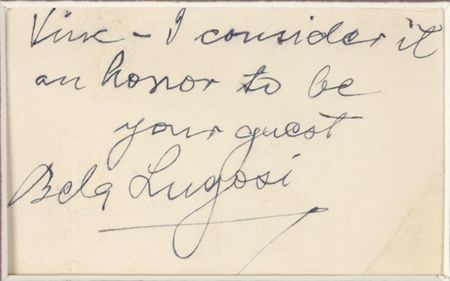 Vinc - I consider it
an honor to be
your guest
Bela Lugosi